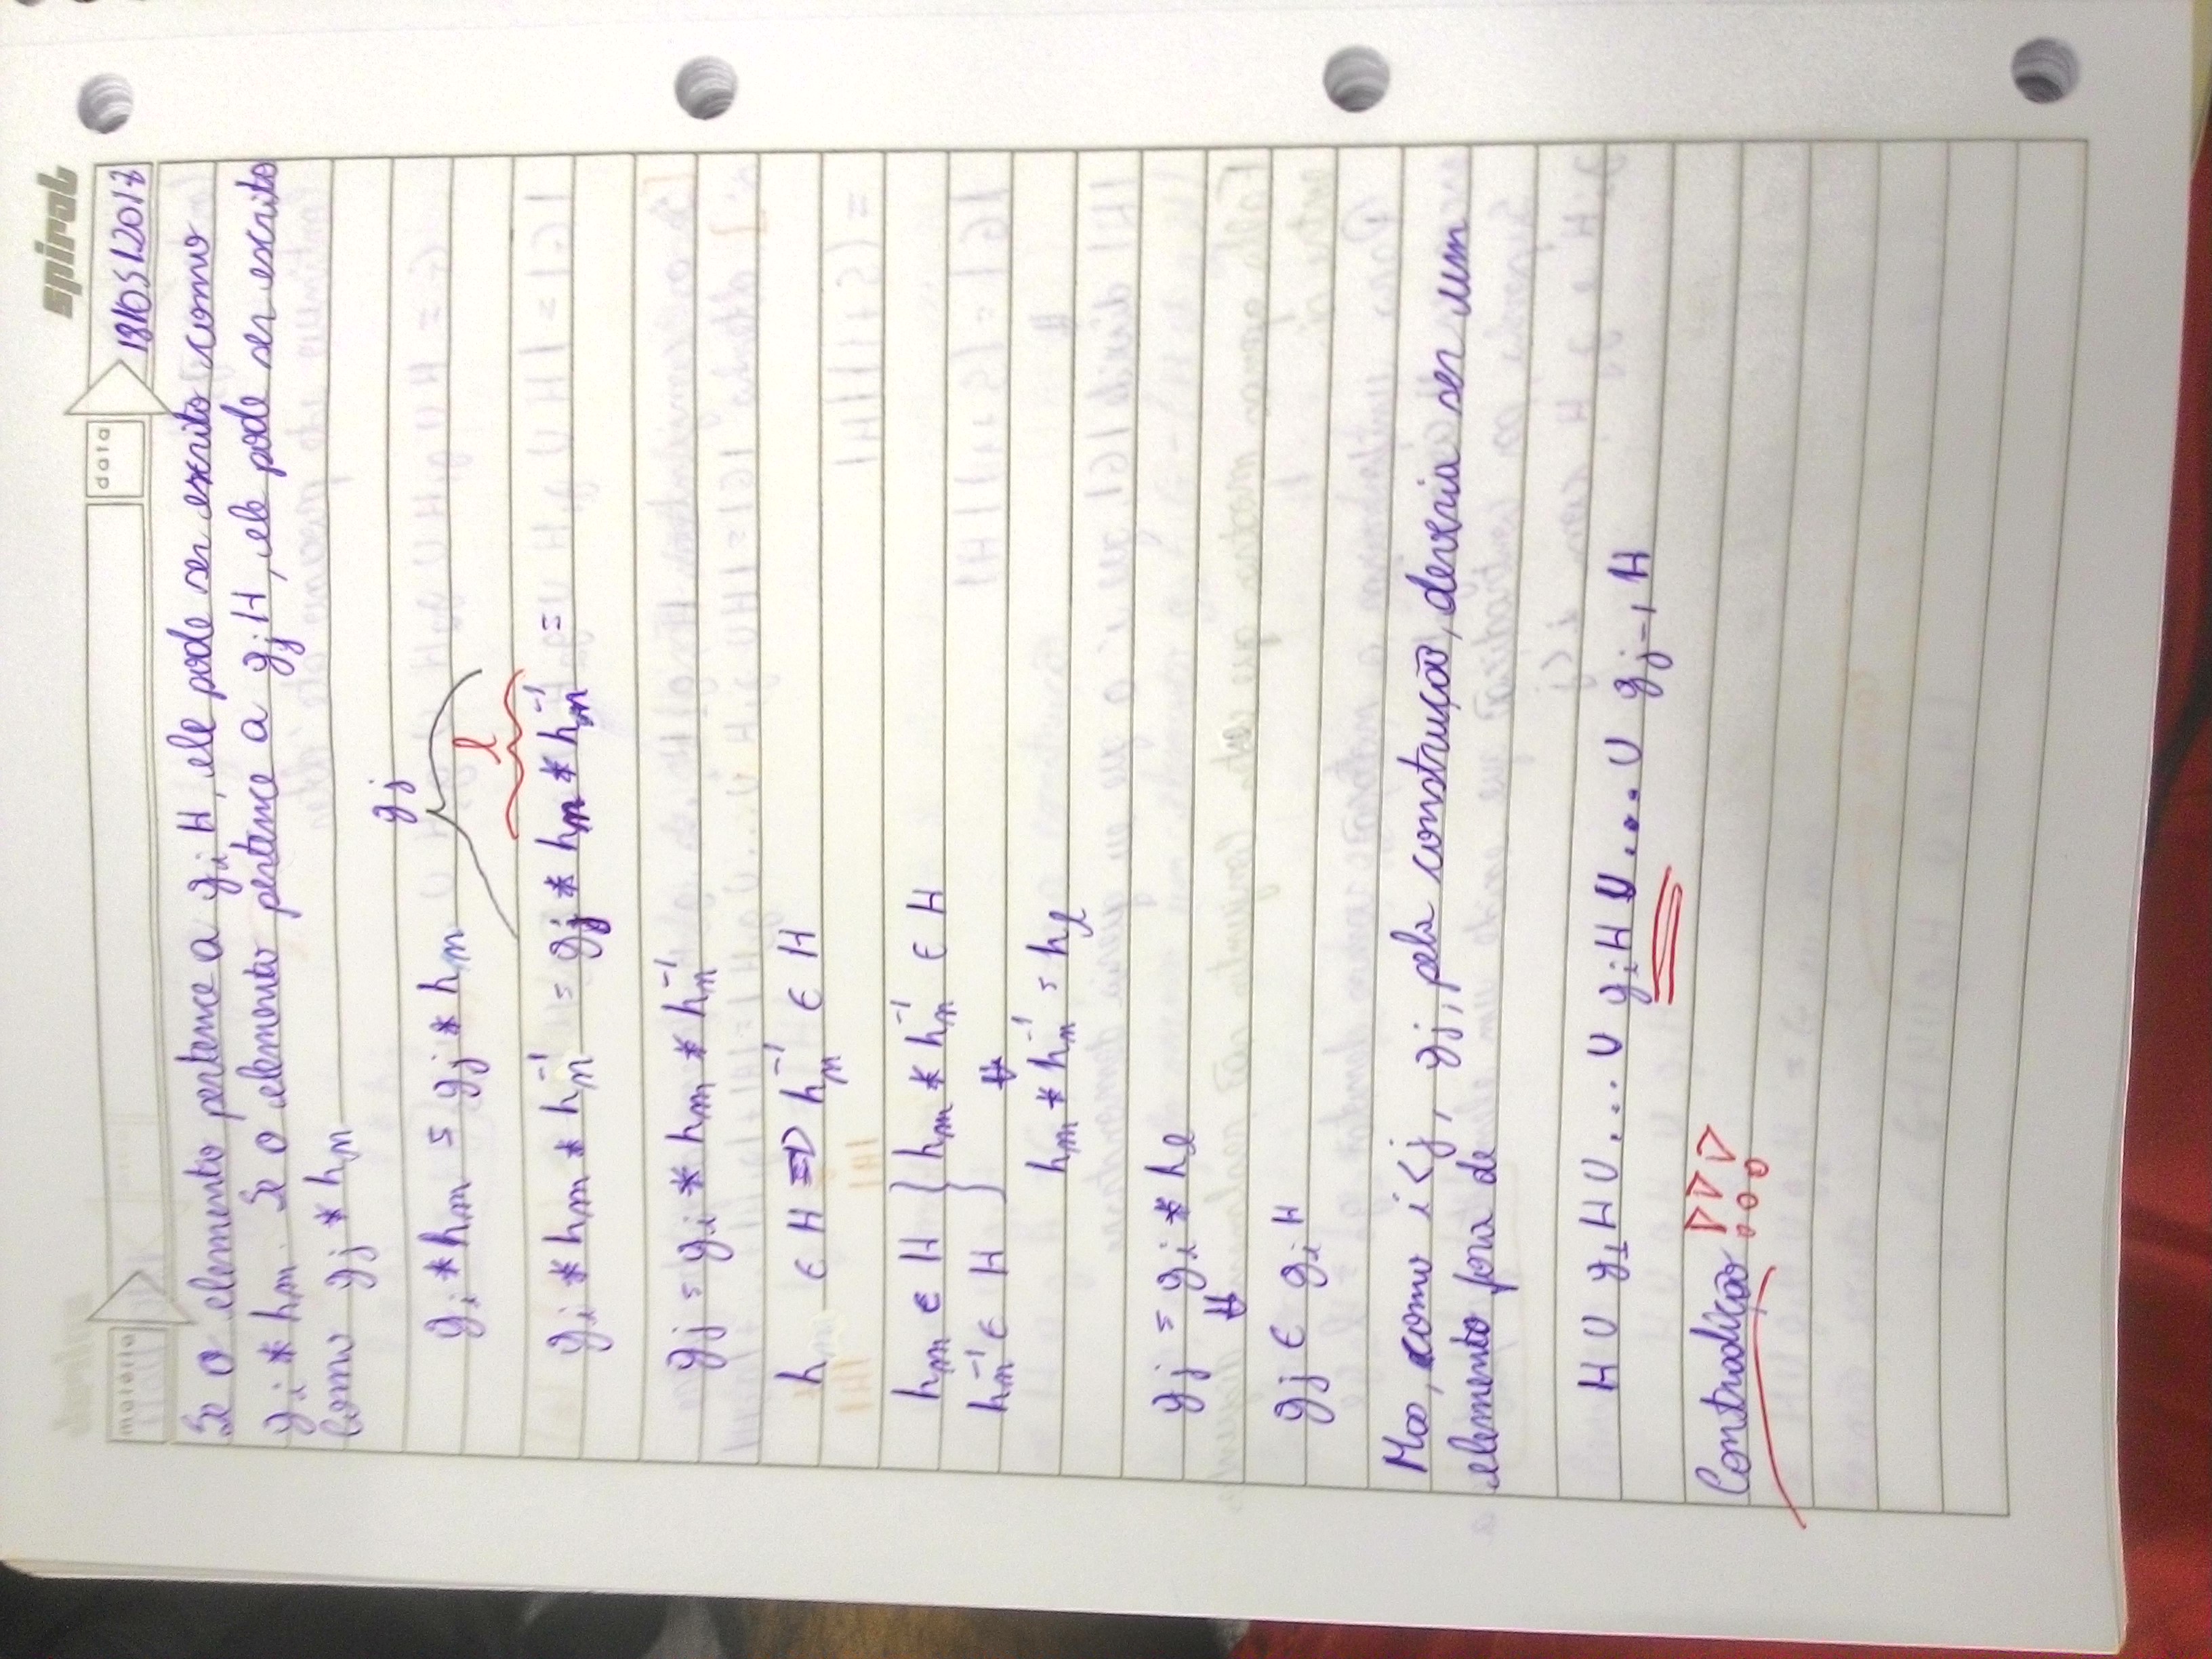 spiral
matéria
data
18/05/2017
Se o elemento pertence a g_i H, ele pode ser escrito como
g_i * h_m. Se o elemento pertence a g_j H, ele pode ser escrito
como g_j * h_n
g_j
g_i * h_m = g_j * h_n
l
g_i * h_m * h_n^-1 = g_j * h_n * h_n^-1 =
g_j = g_i * h_m * h_n^-1
h ∈ H => h_n^-1 ∈ H
h_m ∈ H } h_m * h_n^-1 ∈ H
h_n^-1 ∈ H ⇓
h_m * h_n^-1 = h_l
g_j = g_i * h_l
⇓
g_j ∈ g_i H
Mas, como i < j, g_j, pela construção, deveria ser um
elemento fora de
H U g_1 H U ... U g_i H U ... U g_j-1 H
Contradição !!!